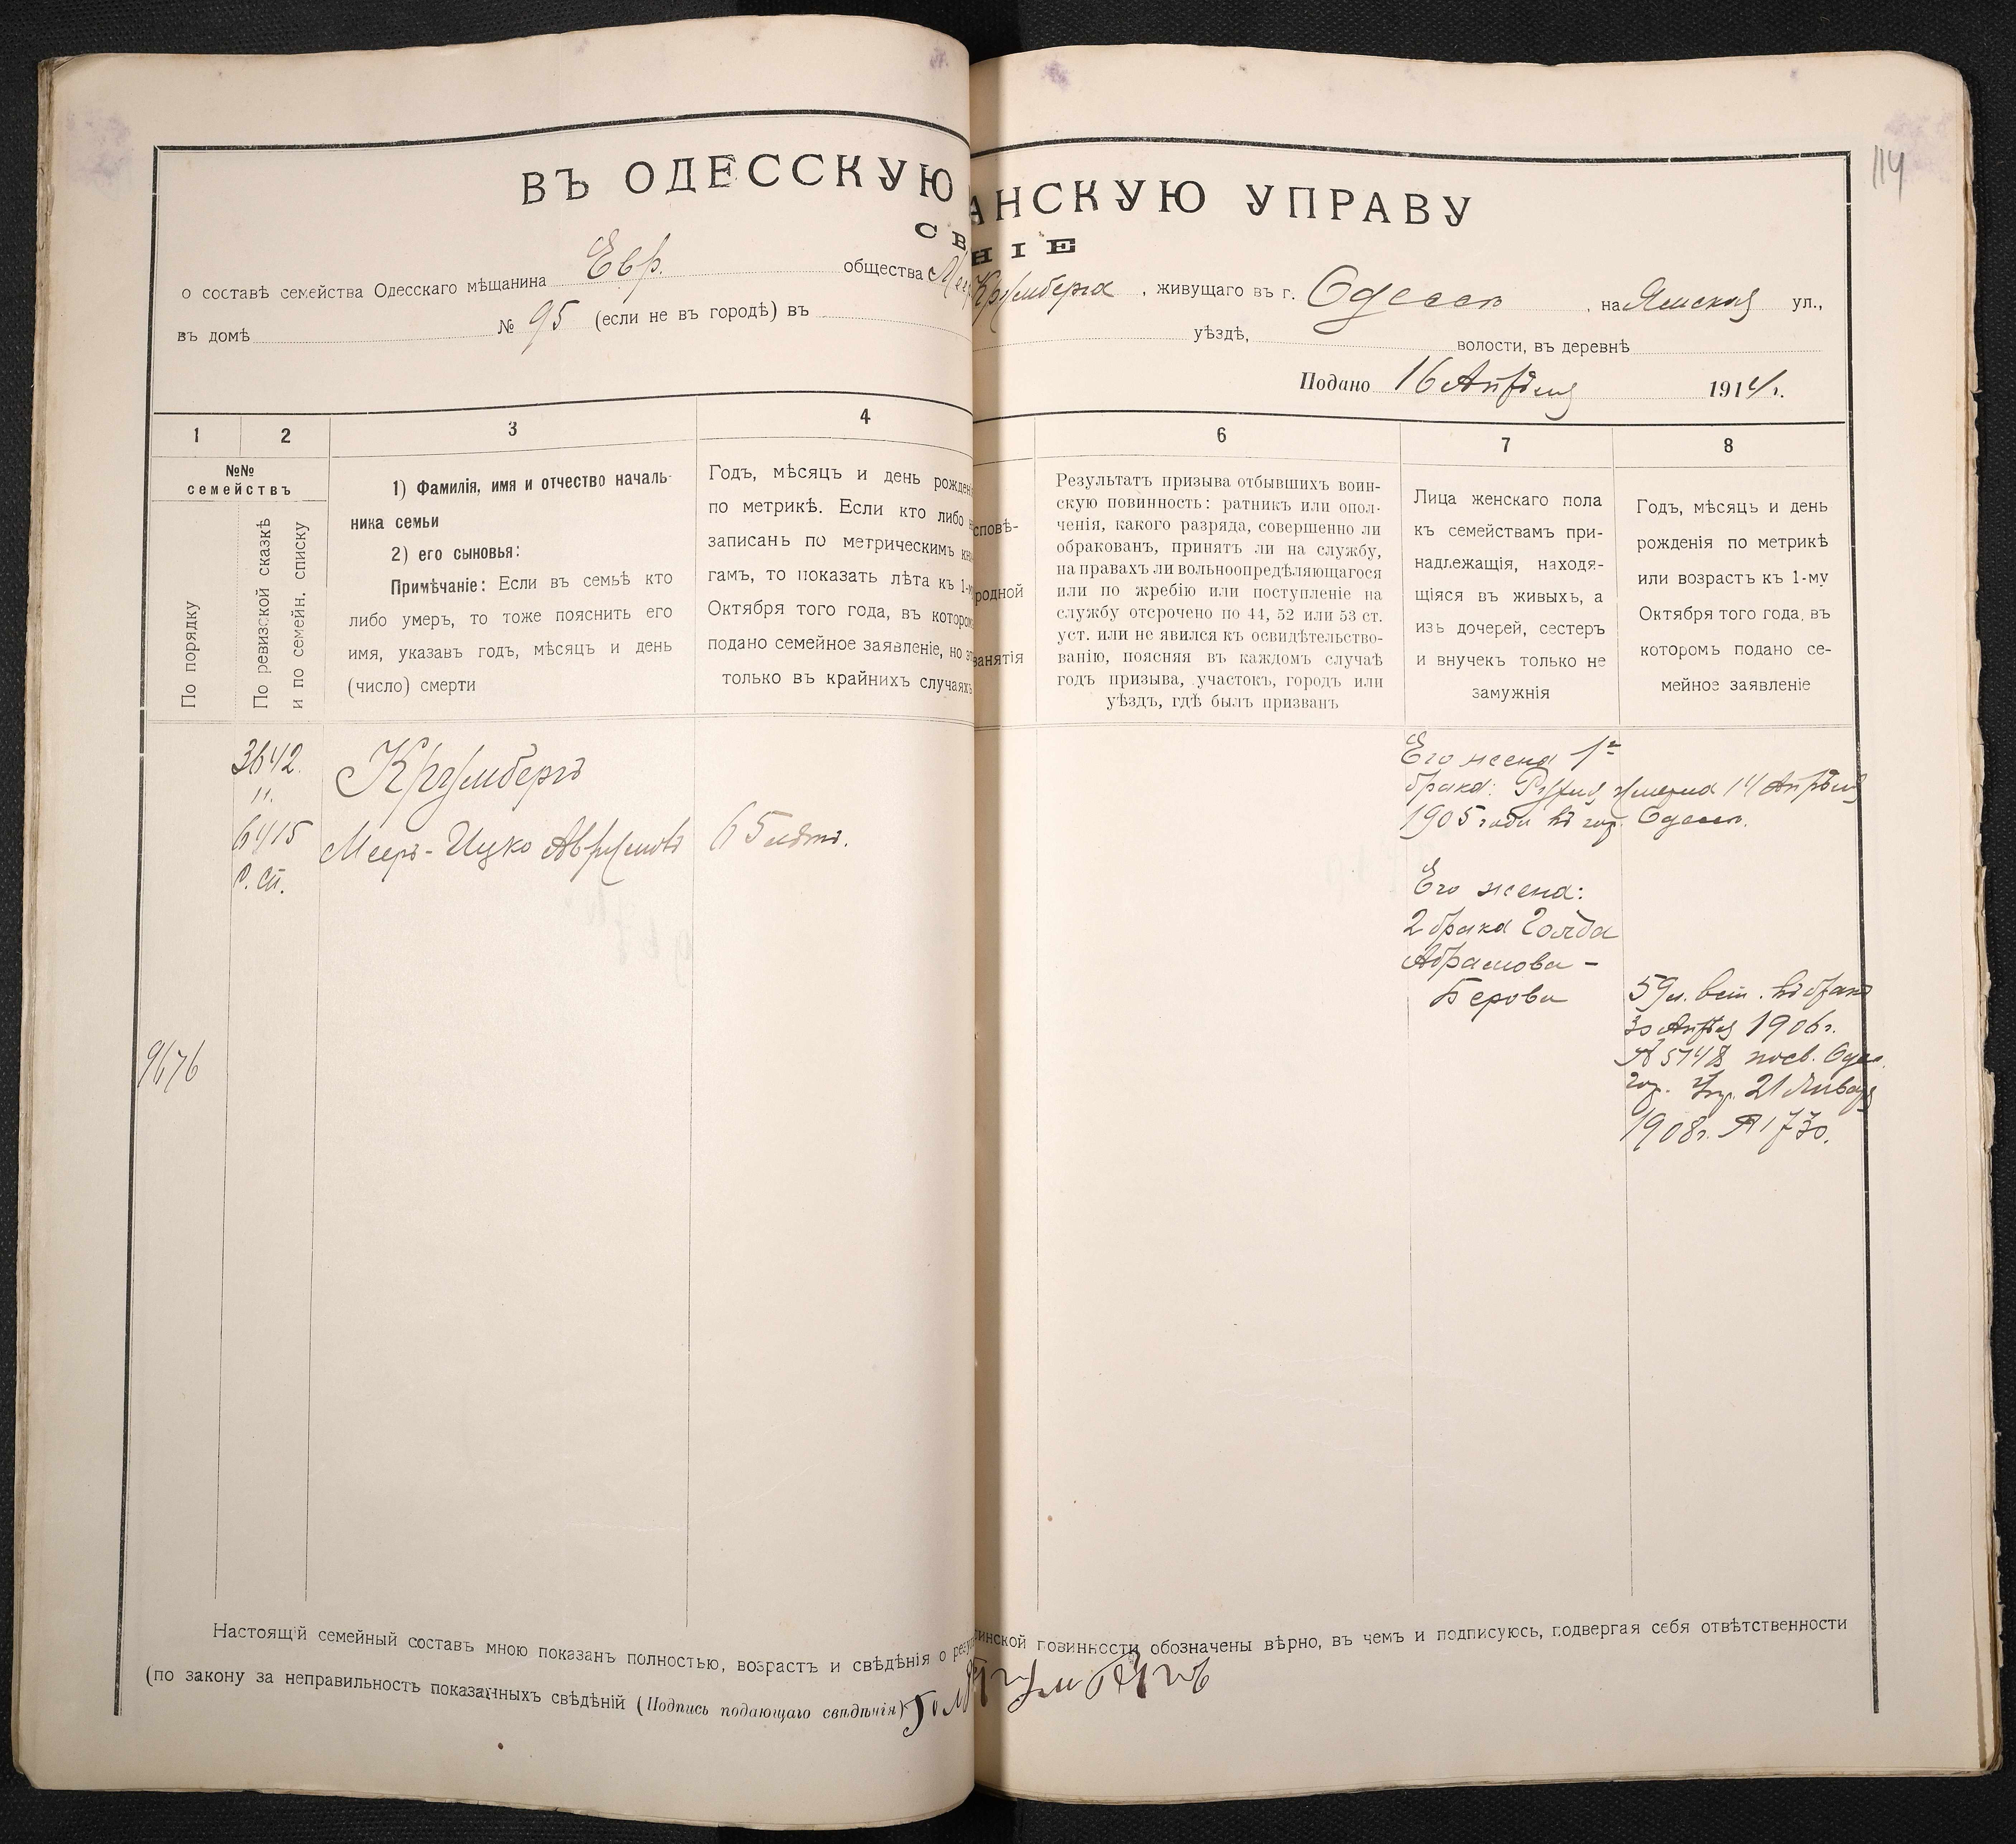 114
ВЪ ОДЕССКУЮ АНСКУЮ УПРАВУ
СВ НІЕ
о составѣ семейства Одесскаго мѣщанина Евр. общества Меер Крумберга, живущаго въ г. Одессѣ, на Ямская ул.,
въ домѣ № 95 (если не въ городѣ) въ уѣздѣ, волости, въ деревнѣ
Подано 16 Апрѣля 1914 г.
1 2 3 4 6 7 8
№№ семействъ
По порядку
По ревизской сказкѣ
и по семейн. списку
1) Фамилія, имя и отчество началь-
ника семьи
2) его сыновья:
Примѣчаніе: Если въ семьѣ кто
либо умеръ, то тоже пояснить его
имя, указавъ годъ, мѣсяцъ и день
(число) смерти
Годъ, мѣсяцъ и день рожден
по метрикѣ. Если кто либо
записанъ по метрическимъ кн
гамъ, то показать лѣта къ 1-м
Октября того года, въ которо
подано семейное заявленіе, но э
только въ крайнихъ случаяхъ
сповѣ-
родной
занятія
Результатъ призыва отбывшихъ воин-
скую повинность: ратникъ или опол-
ченія, какого разряда, совершенно ли
обракованъ, принятъ ли на службу,
на правахъ ли вольноопредѣляющагося
или по жребію или поступленіе на
службу отсрочено по 44, 52 или 53 ст.
уст. или не явился къ освидѣтельство-
ванію, поясняя въ каждомъ случаѣ
годъ призыва, участокъ, городъ или
уѣздъ, гдѣ былъ призванъ
Лица женскаго пола
къ семействамъ при-
надлежащія, находя-
щіяся въ живыхъ, а
изъ дочерей, сестеръ
и внучекъ только не
замужнія
Годъ, мѣсяцъ и день
рожденія по метрикѣ
или возрастъ къ 1-му
Октября того года, въ
которомъ подано се-
мейное заявленіе
3642.
"
6415
р. сп.
9676
Крумбергъ
Мееръ-Ицко Аврумовъ
65 лѣтъ.
Его жена 1го
брака: умерла 14 Апрѣля
1905 года въ гор. Одессѣ.
Его жена:
2 брака Голда
Абрамова-
Берова
59 л. вст. въ бракъ
30 Апрѣля 1906 г.
№ 5748 посв. Одес.
гор. Упр. 21 Января
1908 г. № 1730.
Настоящій семейный составъ мною показанъ полностью, возрастъ и свѣдѣнія о резу инской повинности обозначены вѣрно, въ чемъ и подписуюсь, подвергая себя отвѣтственности
(по закону за неправильность показанныхъ свѣдѣній (Подпись подающаго свѣдѣнія)